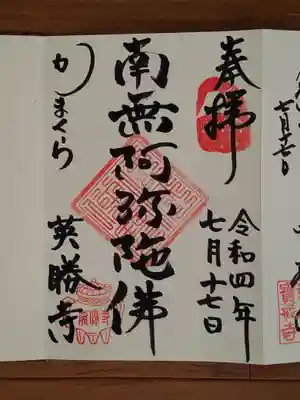 奉拝
令和四年
七月十七日
南無阿弥陀佛
かまくら
英勝寺
七月十七日